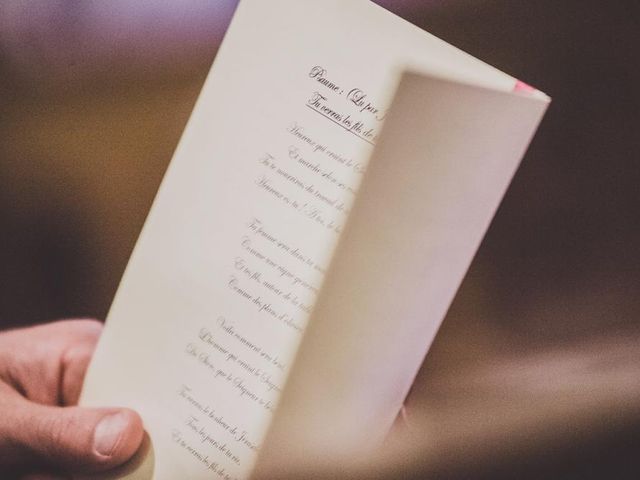 Psaume : (Lu par
Tu verras les fils de
Heureux qui craint le
Et marche selon ses
Tu te nourriras du travail de
Heureux es-tu ! A toi, le
Ta femme sera dans ta
Comme une vigne généreuse
Et tes fils, autour de la table
Comme des plants d'olivier
Voilà comment sera béni
L'homme qui craint le Seigneur
De Sion, que le Seigneur te
Tu verras le bonheur de
Tous les jours de ta vie,
Et tu verras les fils de